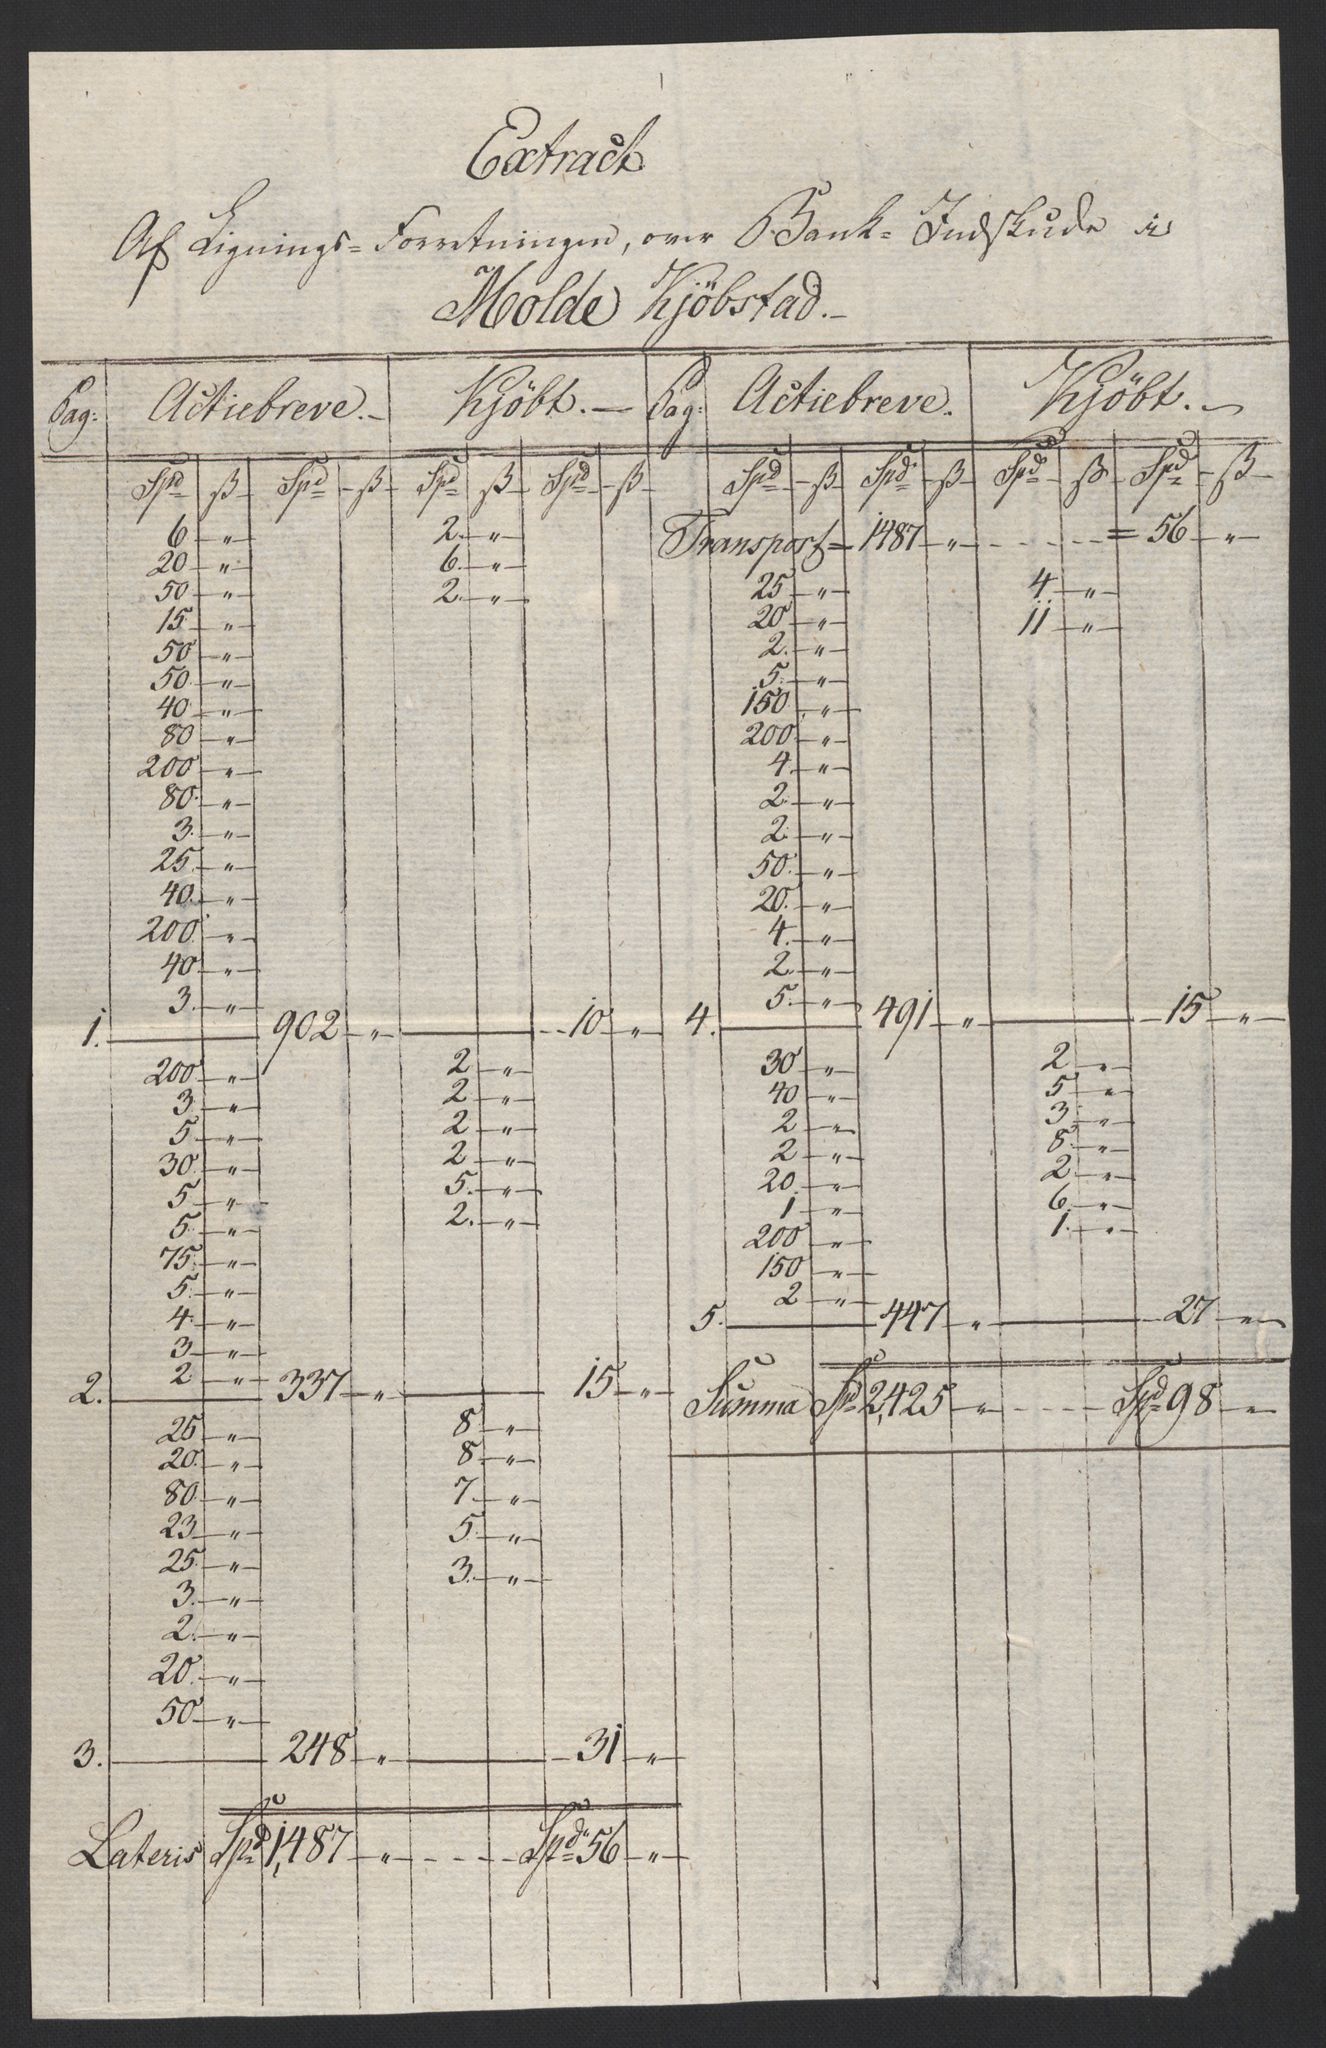 Extract
Af Lignings-Forretningen, over Bank-Indskude i
Molde Kjöbstad.-
Pag: Actiebreve.- Kjöbt.- Pag: Actiebreve. Kjöbt.-
Spd ß Spd ß Spd ß Spd ß Spd ß Spd ß Spd ß Spd ß
6 " 2. "
20 " 6. "
50 " 2. "
15 "
50 "
50 "
40 "
80 "
200 "
80 "
3. "
25. "
40. "
200 "
40 "
3. "
1. 902 " 10 "
200 " 2 "
3. " 2 "
5. " 2 "
30. " 2 "
5. " 5. "
5. " 2. "
75. "
5. "
4. "
3 "
2 "
2. 337 " 15 "
25 " 8. "
20. " 8. "
80. " 7. "
23. " 5. "
25. " 3. "
3. "
2. "
20. "
50 "
3. 248 " 31 "
Lateris Spd 1,487 " Spd 56 "
Transport = 1487 " = 56 "
25. " 4 "
20 " 11 "
2. "
5. "
150 "
200. "
4. "
2. "
2. "
50. "
20. "
4. "
2. "
5. "
4. 491 " 15 "
30 " 2 "
40 " 5 "
2 " 3. "
2 " 8. "
20. " 2. "
1 " 6. "
200 " 1. "
150 "
2 "
5. 447 " 27 "
Summa Spd 2,425 " Spd 98 "